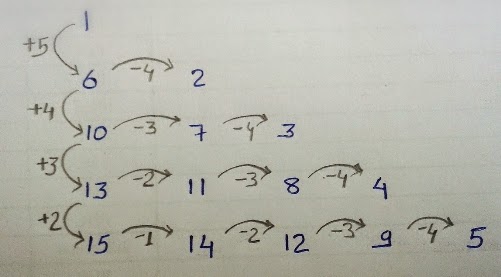 1
+5
6 -4 2
+4
10 -3 7 -4 3
+3
13 -2 11 -3 8 -4 4
+2
15 -1 14 -2 12 -3 9 -4 5